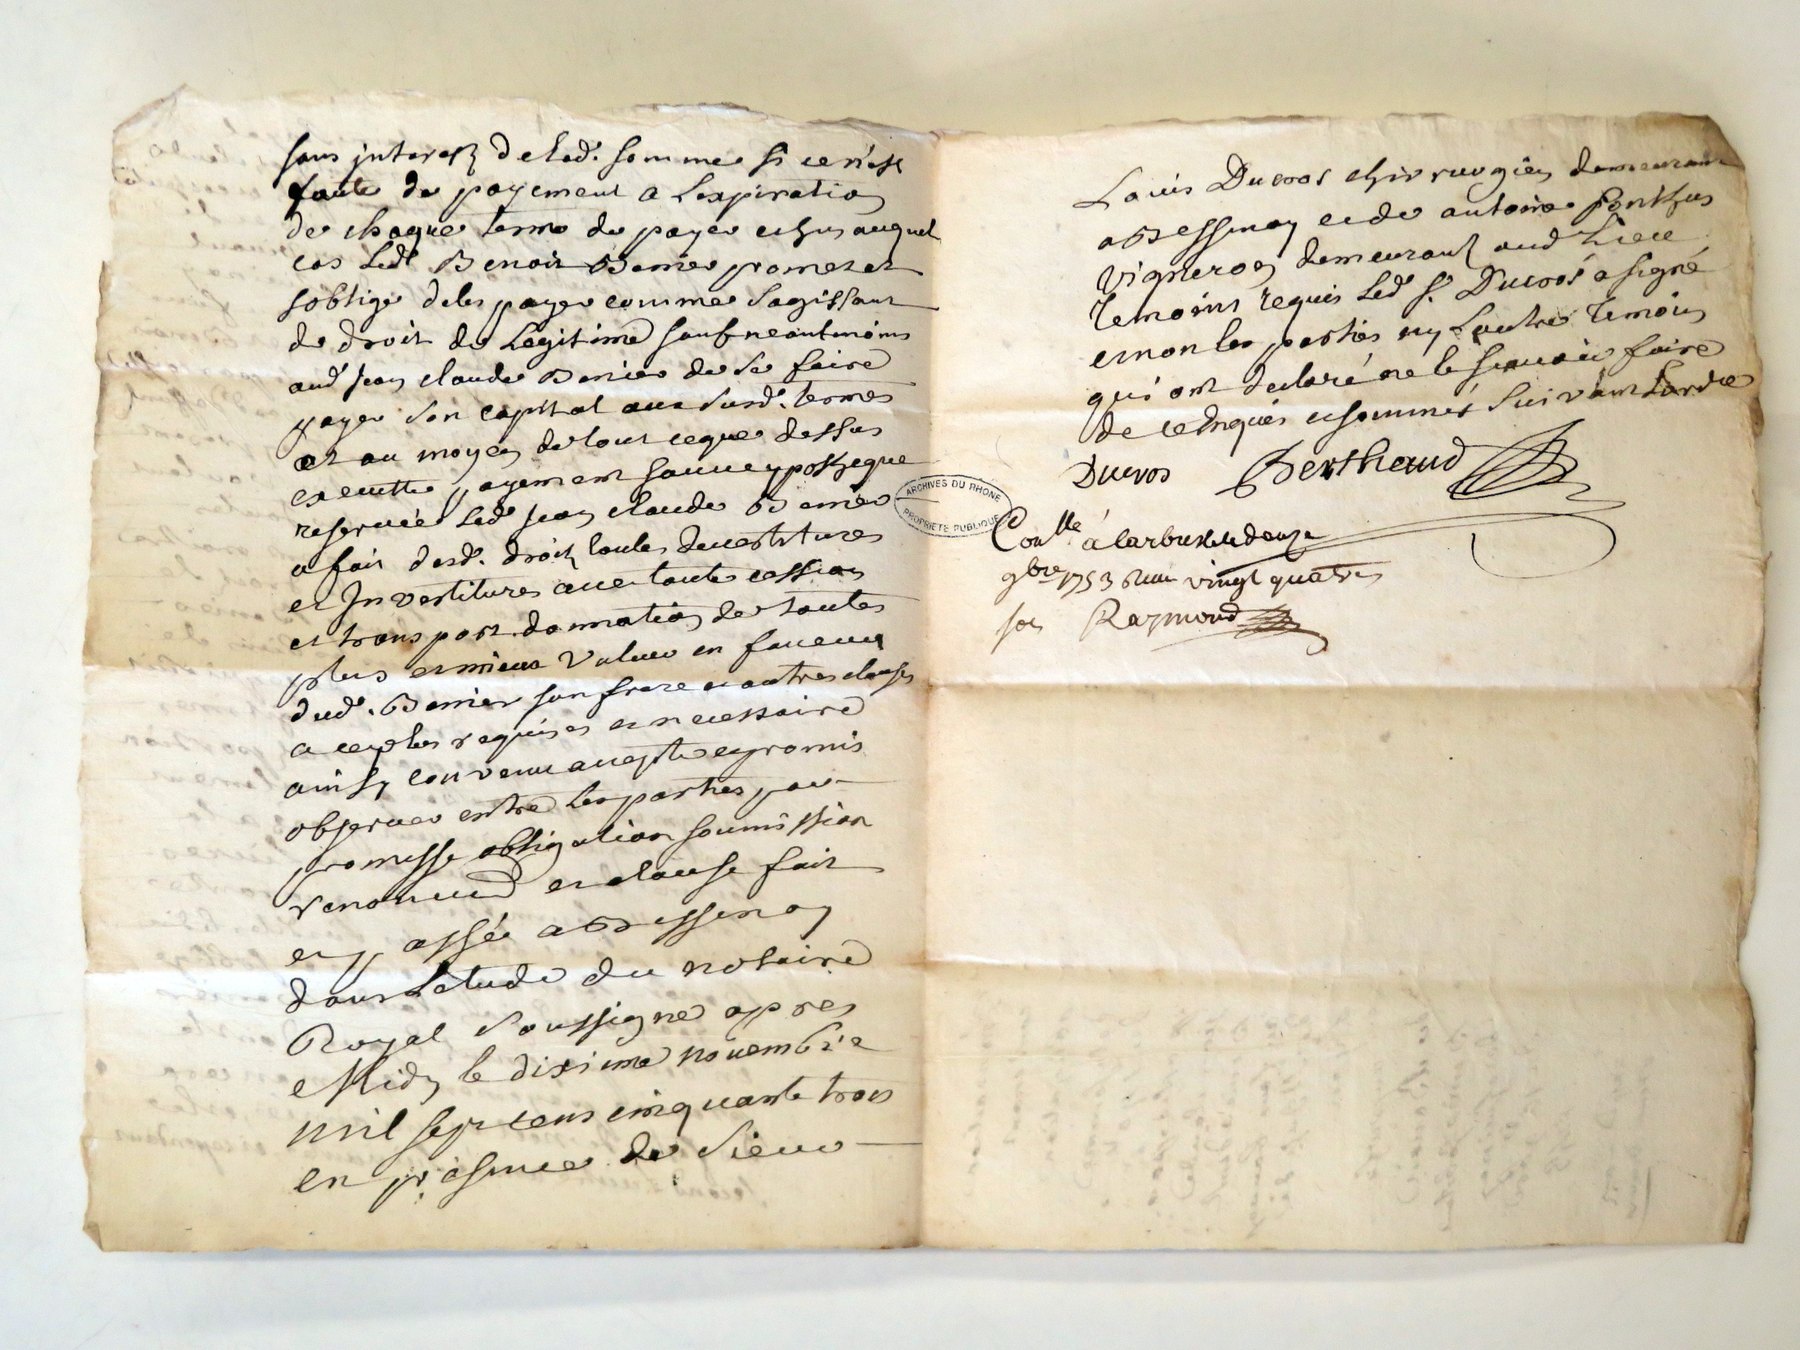 sans interest de lad. somme si ce n'est
faute de payement a Lexpiration
de chaque terme de payer echus auquel
cas Led. Benoit Bernier promet et
soblige de les payer comme sagissant
de droit de Legitime sauf neantmoins
aud. jean claude Bernier de se faire
payer son capital aux susd. termes
et au moyen de tout ce que dessus
execution payement sauve ypotheque
reservée led. jean claude Bernier
a fait desd. droits toutes devestitures
et Investitures avec toute cession
et transport donnation de toutes
plus et mieux value en faveur
dud. Bernier son frere et autres clauses
a ce plus requises et necessaire
ainsy convenu accepté et promis
observer entre les parties par
promesse obligation soumission
renonciation et clause fait
et passé a Bessenay
dans Letude du notaire
Royal soussigné apres
Midy le dixieme novembre
mil sept cens cinquante trois
en presence de sieur
Louis Ducros chirurgien demeurant
a Bessenay et de antoine Ponthus
vigneron demeurant aud. Lieu
temoins requis led. sr. Ducros a signé
et non les parties ny Lautre temoin
qui ont declaré ne le sçavoir faire
de ce enquis et sommés suivant Lordce
Ducros Berthaud
ARCHIVES DU RHONE
PROPRIÉTÉ PUBLIQUE
Conllé à larbresle le douze
9bre 1753 Reçu vingt quatre
sols Raymond